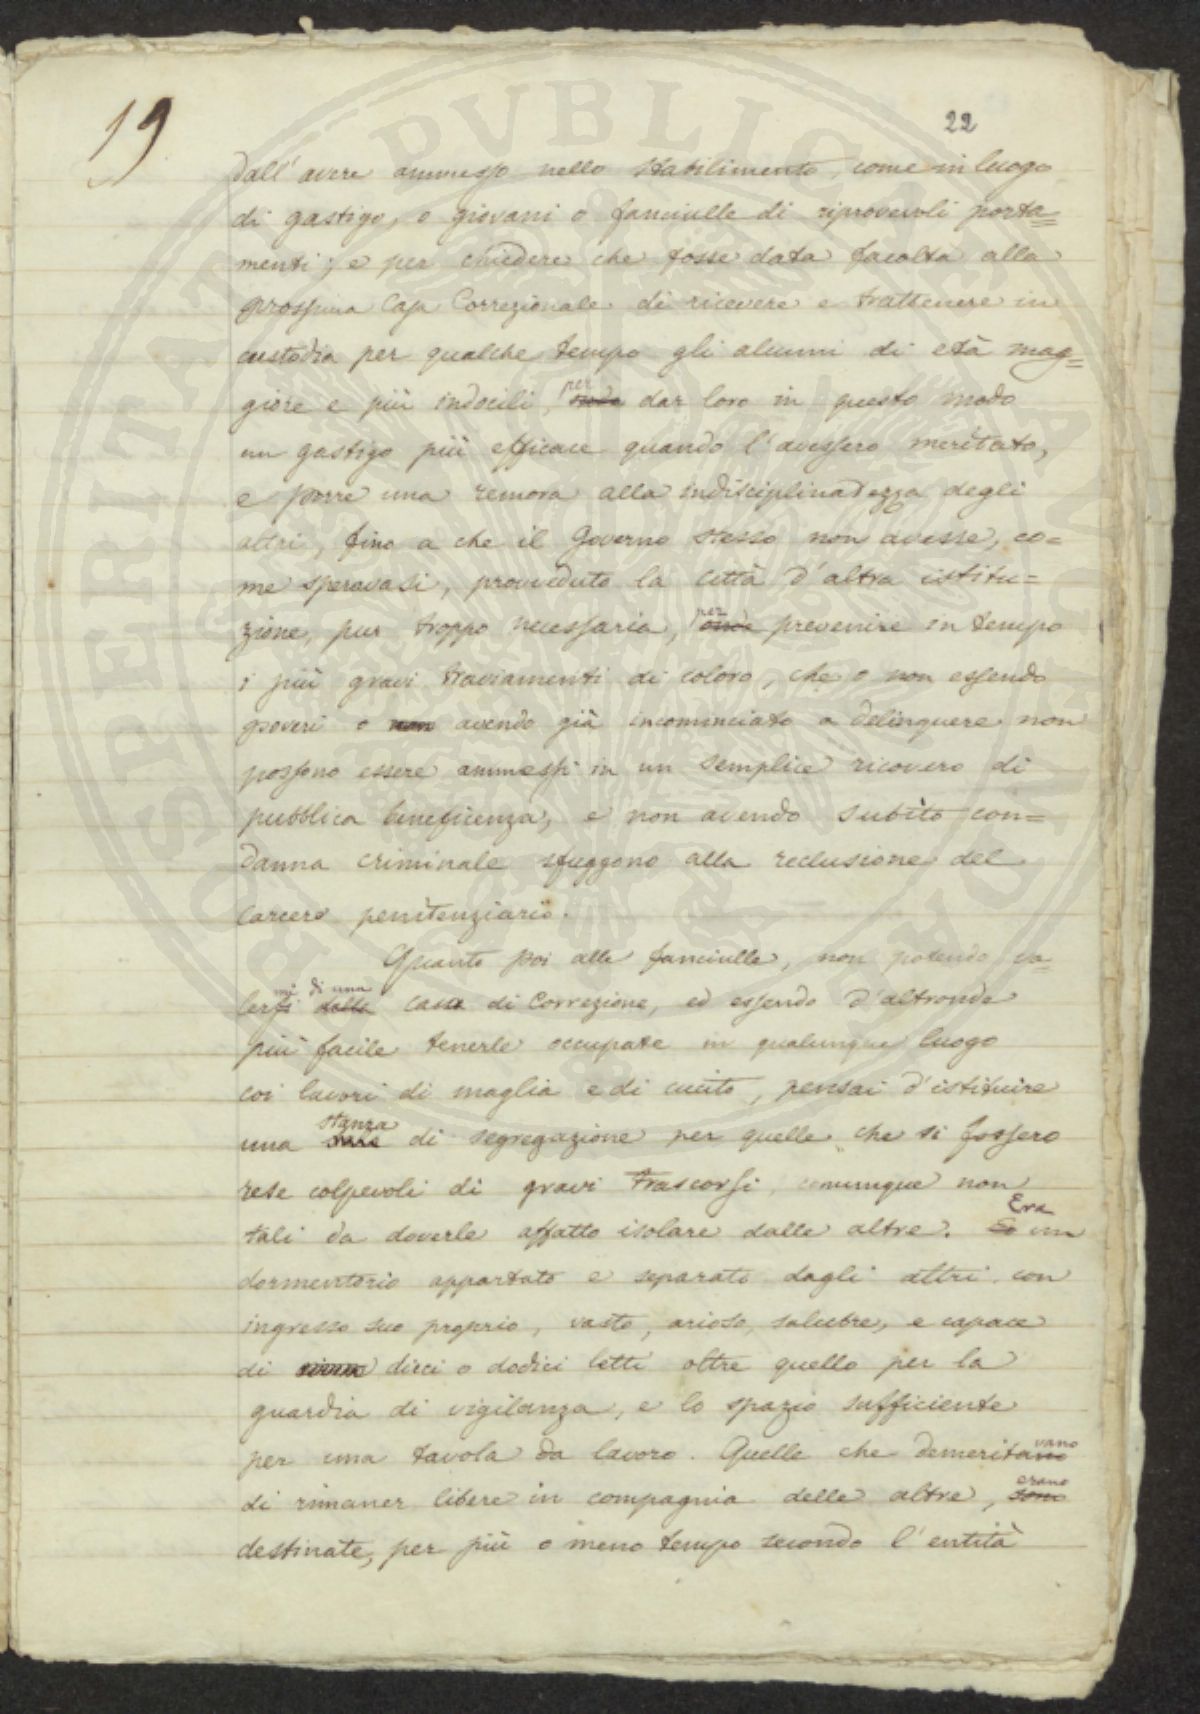 19
22
dall'avere ammesso nello stabilimento, come in luogo
di gastigo, o giovani o fanciulle di riprovevoli porta=
menti; e per chiedere che fosse data facoltà alla
prossima Casa Correzionale di ricevere e trattenere in
custodia per qualche tempo gli alunni di età mag=
giore e più indocili, per onde dar loro in questo modo
un gastigo più efficace quando l'avessero meritato,
e porre una remora alla indisciplinatezza degli
altri, fino a che il Governo stesso non avesse, co=
me speravasi, provveduto la città d'altra istitu=
zione, pur troppo necessaria, per onde prevenire in tempo
i più gravi traviamenti di coloro, che o non essendo
poveri o non avendo già incominciato a delinquere non
possono essere ammessi in un semplice ricovero di
pubblica beneficenza, e non avendo subìto con=
danna criminale sfuggono alla reclusione del
carcere penitenziario.
Quanto poi alle fanciulle, non potendo va=
lersi mi dalla di una casa di Correzione, ed essendo d'altronde
più facile tenerle occupate in qualunque luogo
coi lavori di maglia e di cucito, pensai d'istituire
una stanza di segregazione per quelle che si fossero
rese colpevoli di gravi trascorsi, comunque non
tali da doverle affatto isolare dalle altre. Era un
dormentorio appartato e separato dagli altri, con
ingresso suo proprio, vasto, arioso, salubre, e capace
di dieci o dodici letti oltre quello per la
guardia di vigilanza, e lo spazio sufficiente
per una tavola da lavoro. Quelle che demeritano vano
di rimaner libere in compagnia delle altre, erano sono
destinate, per più o meno tempo secondo l'entità
PROSPERITATE PVBLICA